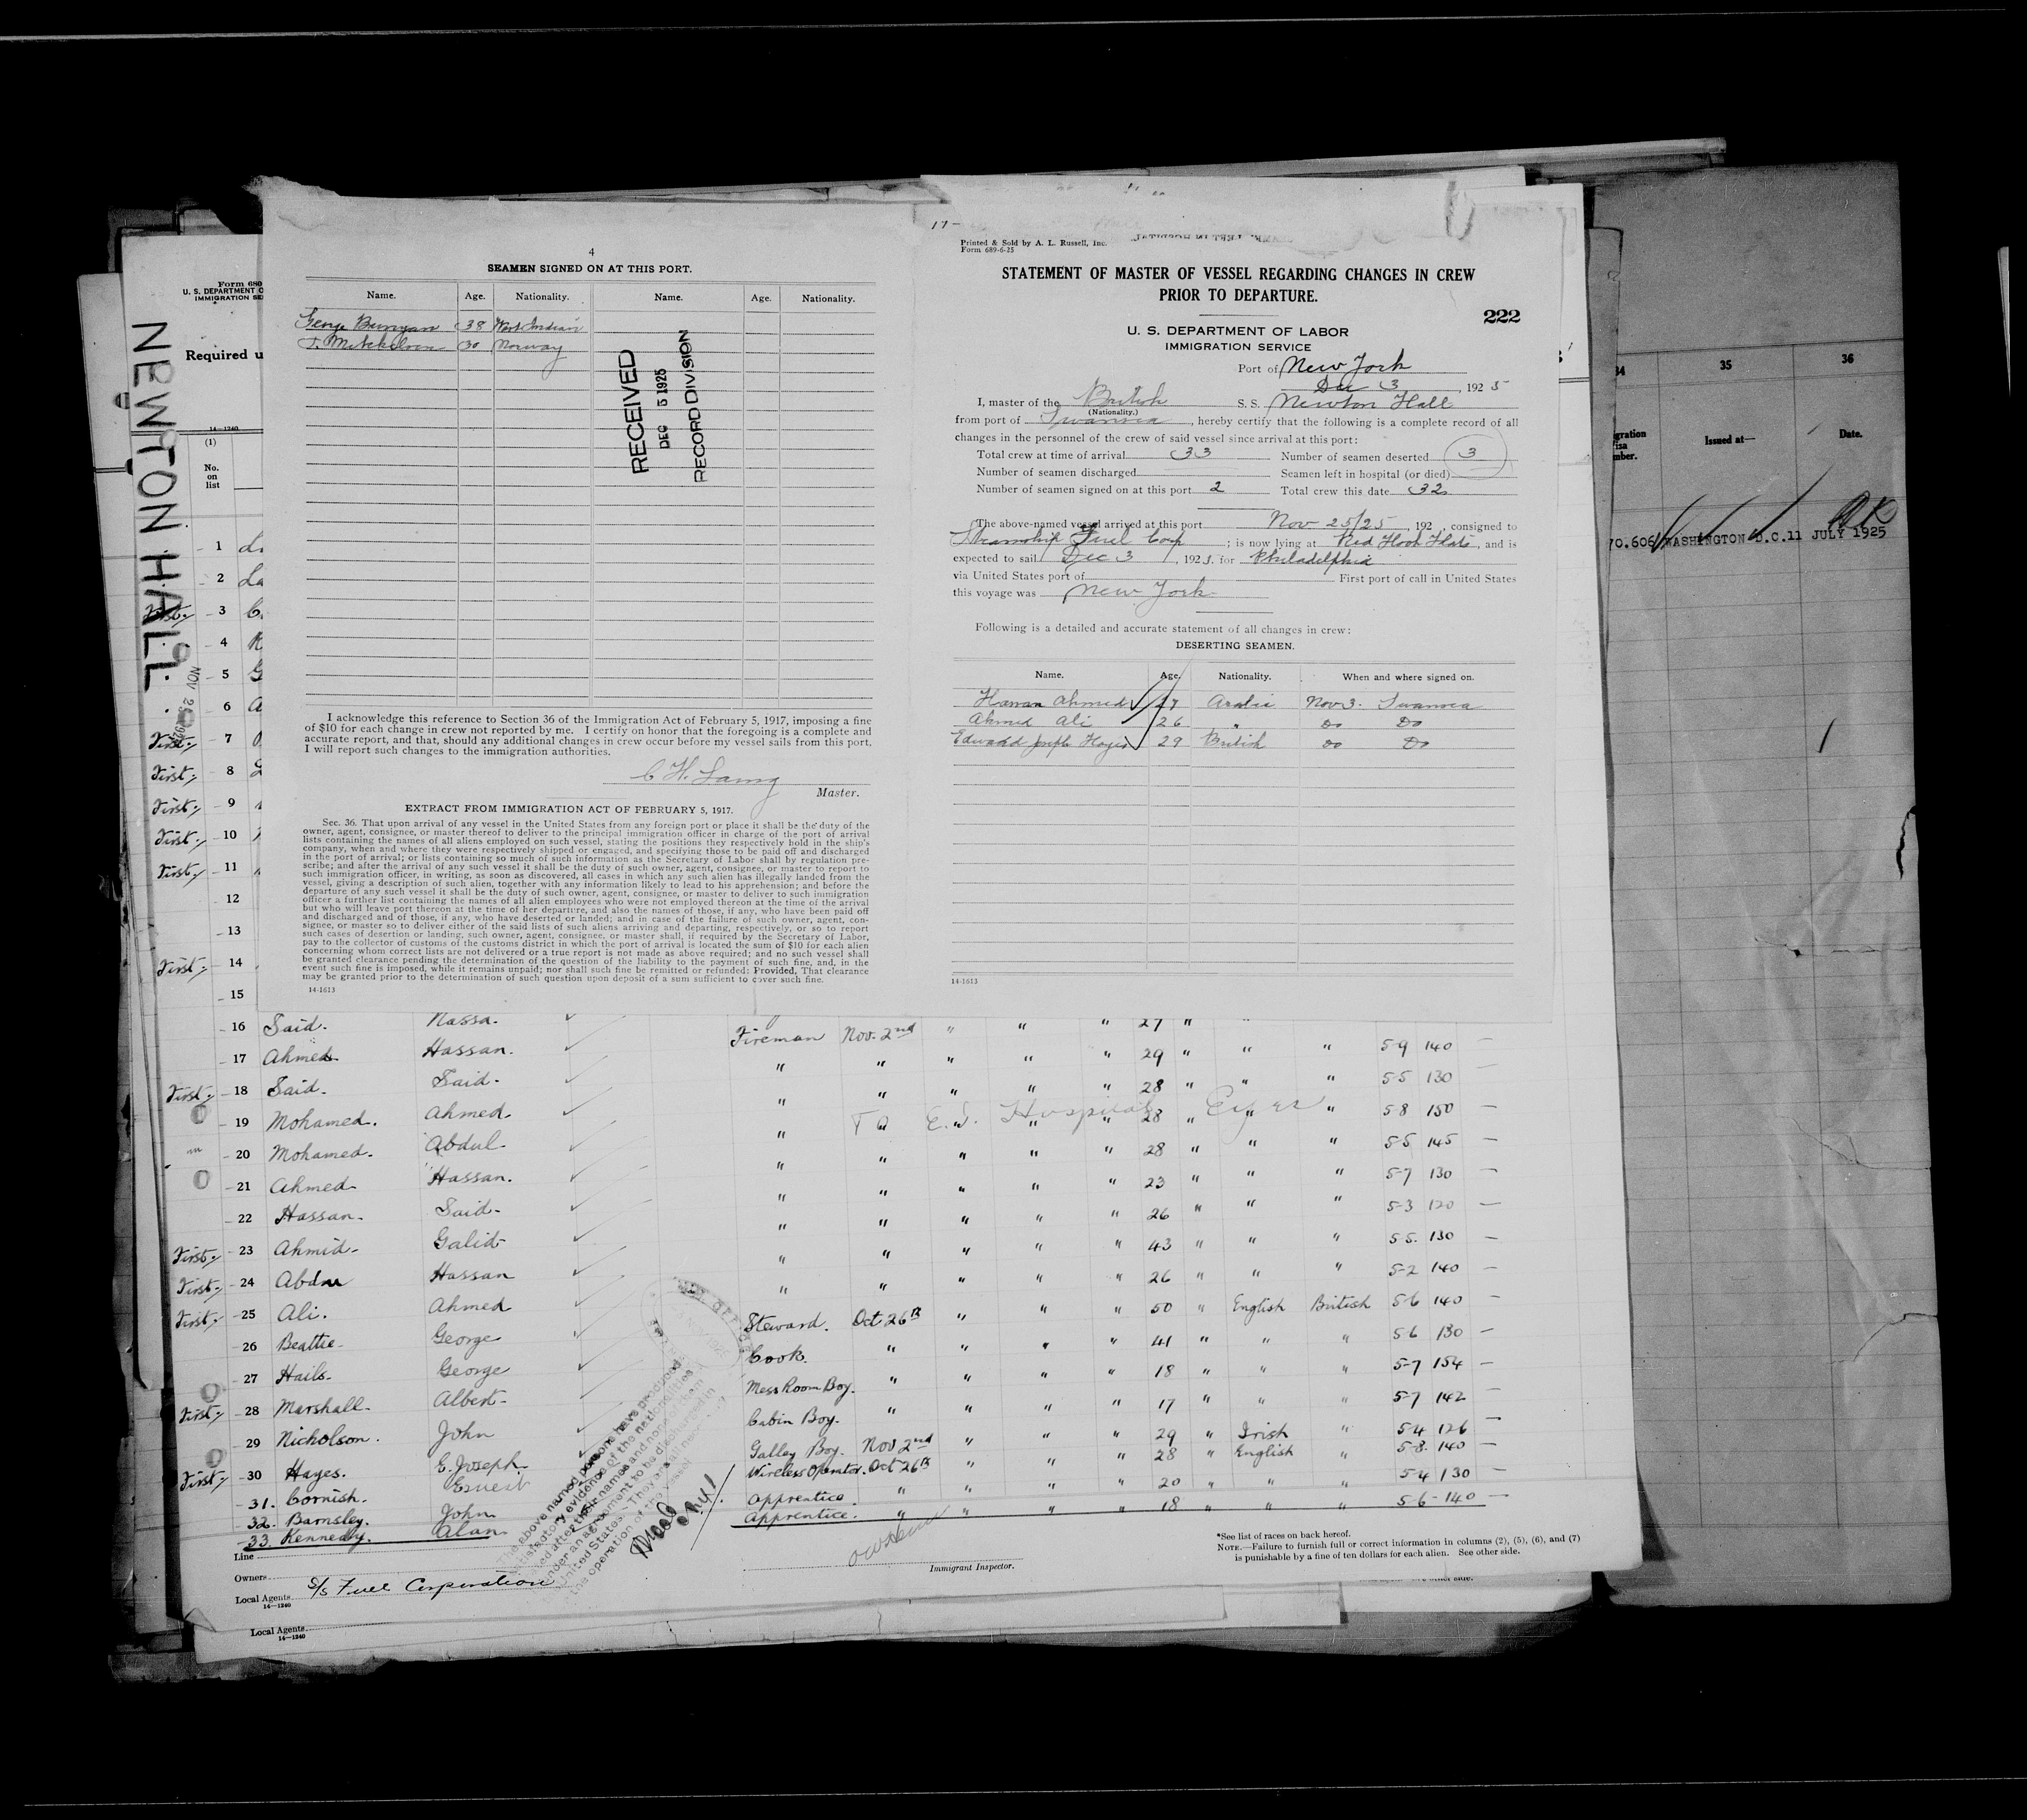 4
SEAMEN SIGNED ON AT THIS PORT.
Name. Age. Nationality. Name. Age. Nationality.
George Bunyan 38 West Indian
30 Norway
RECEIVED
DEC 5 1925
RECORD DIVISION
I acknowledge this reference to Section 36 of the Immigration Act of February 5, 1917, imposing a fine
of $10 for each change in crew not reported by me. I certify on honor that the foregoing is a complete and
accurate report, and that, should any additional changes in crew occur before my vessel sails from this port,
I will report such changes to the immigration authorities.
Master.
EXTRACT FROM IMMIGRATION ACT OF FEBRUARY 5, 1917.
Sec. 36. That upon arrival of any vessel in the United States from any foreign port or place it shall be the duty of the
owner, agent, consignee, or master thereof to deliver to the principal immigration officer in charge of the port of arrival
lists containing the names of all aliens employed on such vessel, stating the positions they respectively hold in the ship's
company, when and where they were respectively shipped or engaged, and specifying those to be paid off and discharged
in the port of arrival; or lists containing so much of such information as the Secretary of Labor shall by regulation pre-
scribe; and after the arrival of any such vessel it shall be the duty of such owner, agent, consignee, or master to report to
such immigration officer, in writing, as soon as discovered, all cases in which any such alien has illegally landed from the
vessel, giving a description of such alien, together with any information likely to lead to his apprehension; and before the
departure of any such vessel it shall be the duty of such owner, agent, consignee, or master to deliver to such immigration
officer a further list containing the names of all alien employees who were not employed thereon at the time of the arrival
but who will leave port thereon at the time of her departure, and also the names of those, if any, who have been paid off
and discharged and of those, if any, who have deserted or landed; and in case of the failure of such owner, agent, con-
signee, or master so to deliver either of the said lists of such aliens arriving and departing, respectively, or so to report
such cases of desertion or landing, such owner, agent, consignee, or master shall, if required by the Secretary of Labor,
pay to the collector of customs of the customs district in which the port of arrival is located the sum of $10 for each alien
concerning whom correct lists are not delivered or a true report is not made as above required; and no such vessel shall
be granted clearance pending the determination of the question of the liability to the payment of such fine, and, in the
event such fine is imposed, while it remains unpaid; nor shall such fine be remitted or refunded: Provided, That clearance
may be granted prior to the determination of such question upon deposit of a sum sufficient to cover such fine.
14-1613
17-
Printed & Sold by A. L. Russell, Inc.
Form 689-6-25
STATEMENT OF MASTER OF VESSEL REGARDING CHANGES IN CREW
PRIOR TO DEPARTURE.
222
U. S. DEPARTMENT OF LABOR
IMMIGRATION SERVICE
Port of New York
Dec 3, 1925
I, master of the British S. S. Newton Hall
(Nationality.)
from port of Swansea, hereby certify that the following is a complete record of all
changes in the personnel of the crew of said vessel since arrival at this port:
Total crew at time of arrival 33 Number of seamen deserted 3
Number of seamen discharged Seamen left in hospital (or died)
Number of seamen signed on at this port 2 Total crew this date 32
The above-named vessel arrived at this port Nov 25/25, 192 , consigned to
Steamship Fuel Corp; is now lying at Red Hook Flats, and is
expected to sail Dec 3, 1925. for Philadelphia
via United States port of First port of call in United States
this voyage was New York
Following is a detailed and accurate statement of all changes in crew:
DESERTING SEAMEN.
Name. Age. Nationality. When and where signed on.
Hassan Ahmed 27 Arabia Nov 3. Swansea
Ahmed Ali 26 " Do Do
Edward Joseph Hayes 29 British Do Do
14-1613
Form 680
U. S. DEPARTMENT O
IMMIGRATION SE
Required u
NEWTON HALL
14-1240
(1)
No.
on
list
1
2
First 3
4
5
6
First 7
First 8
First 9
First 10
First 11
12
13
First 14
15
16 Said. Nassa. Fireman Nov. 2nd " " " 27 "
17 Ahmed Hassan. " " " " " 29 " " " 5-9 140 —
First 18 Said. Said. " " " " " 28 " " " 5-5 130 —
19 Mohamed. Ahmed. " To E.I. Hospital 28 " Eyes " 5-8 150 —
20 Mohamed. Abdul. " " " " " 28 " " " 5-5 145 —
21 Ahmed Hassan. " " " " " 23 " " " 5-7 130 —
22 Hassan. Said. " " " " " 26 " " " 5-3 120 —
First 23 Ahmid. Galid " " " " " 43 " " " 5-5. 130 —
First 24 Abdu Hassan " " " " " 26 " " " 5-2 140 —
First 25 Ali. Ahmed Steward. Oct 26th " " " 50 " English British 5-6 140 —
26 Beattie George Cook. " " " " 41 " " " 5-6 130 —
27 Hails. George Mess Room Boy. " " " " 18 " " " 5-7 154 —
First 28 Marshall. Albert Cabin Boy. " " " " 17 " " " 5-7 142 —
29 Nicholson. John Galley Boy. Nov 2nd " " " 29 " Irish " 5-4 126 —
First 30 Hayes. E. Joseph. Wireless Operator. Oct 26th " " " 28 " English " 5-8. 140 —
31. Cornish. Ernest Apprentice. " " " " 20 " " " 5-4 130 —
32. Barnsley. John Apprentice. " " " " 18 " " " 5-6-140 —
33. Kennedy. Alan
The above named persons have produced
satisfactory evidence of the nationalities
United States. They are all necessary
the operation of the vessel
Line
Owners
Local Agents S/s Fuel Corporation
14—1240
Immigrant Inspector.
*See list of races on back hereof.
NOTE.—Failure to furnish full or correct information in columns (2), (5), (6), and (7)
is punishable by a fine of ten dollars for each alien. See other side.
Local Agents
14—1240
34 35 36
gration
isa
mber.
Issued at—
Date.
70.606 WASHINGTON D.C. 11 JULY 1925
OK